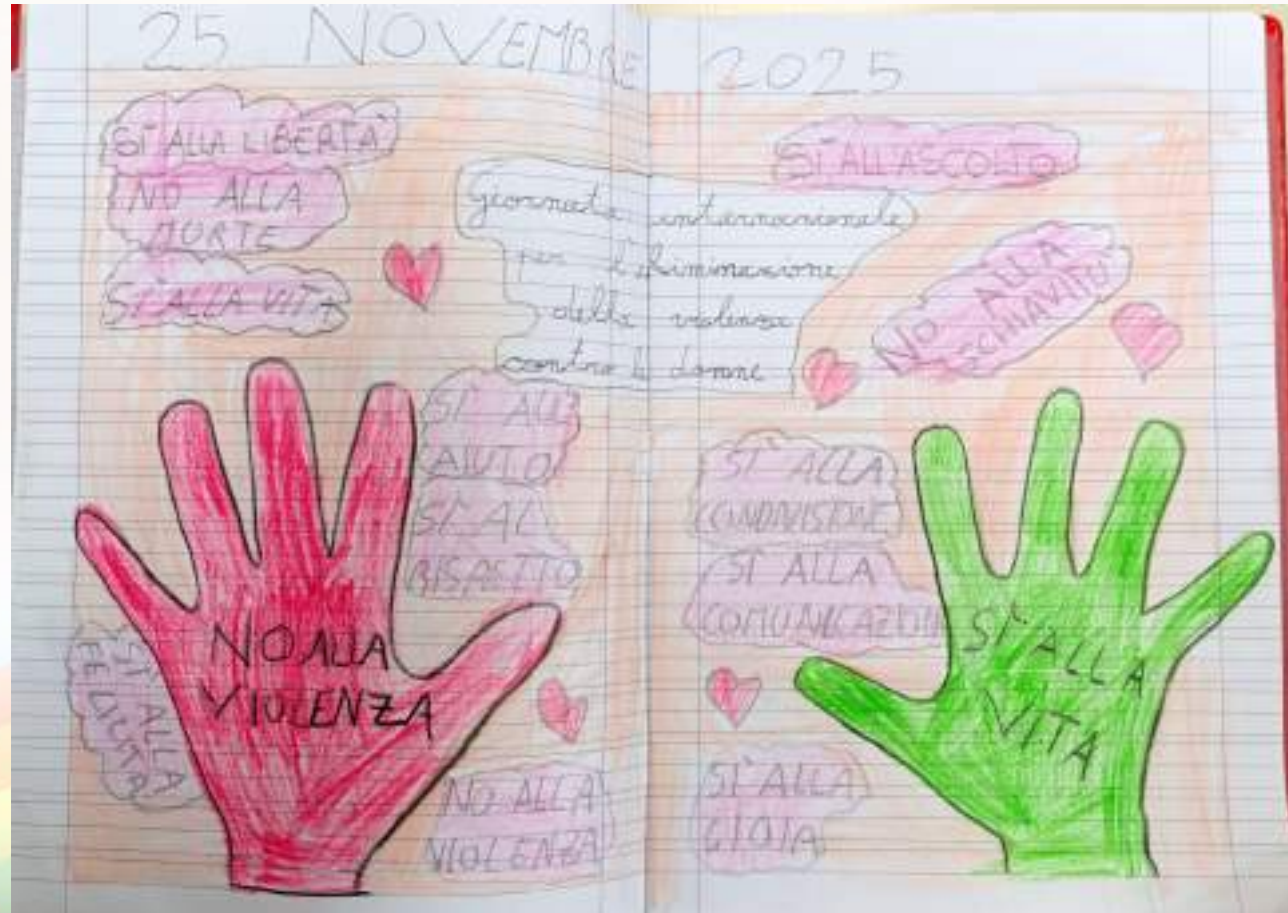 25 NOVEMBRE 2025
SI' ALLA LIBERTA'
NO ALLA
MORTE
SI' ALLA VITA
Giornata internazionale
per l'eliminazione
della violenza
contro le donne
SI' ALL'ASCOLTO
NO ALLA
SCHIAVITU'
SI' ALL'
AIUTO
SI' AL
RISPETTO
SI' ALLA
CONDIVISIONE
SI' ALLA
COMUNICAZION
NO ALLA
VIOLENZA
SI' ALLA
VITA
SI' ALLA
FELICITA'
NO ALLA
VIOLENZA
SI' ALLA
GIOIA